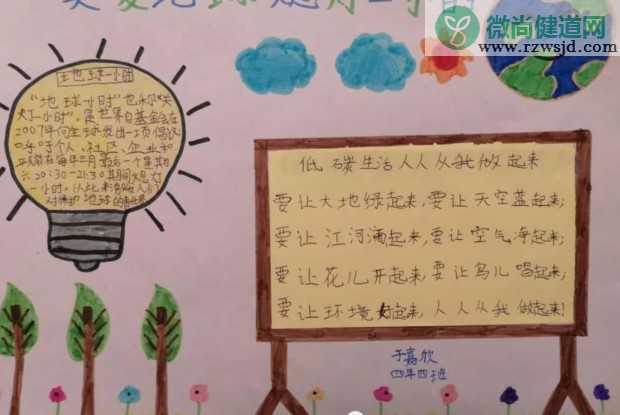 微尚健道网
www.rzwsjd.com
地球一小时
"地球一小时"也称"关
灯一小时",是世界自然基金会在
2007年向全球发出一项倡议
呼吁个人、社区、企业和
政府在每年三月最后一个星期
六20:30-21:30期间熄灯
一小时,以此来激发人们
对保护地球的
低碳生活人人从我做起来
要让大地绿起来,要让天空蓝起来;
要让江河清起来,要让空气净起来;
要让花儿开起来,要让鸟儿唱起来;
要让环境好起来,人人从我做起来!
于嘉欣
四年四班